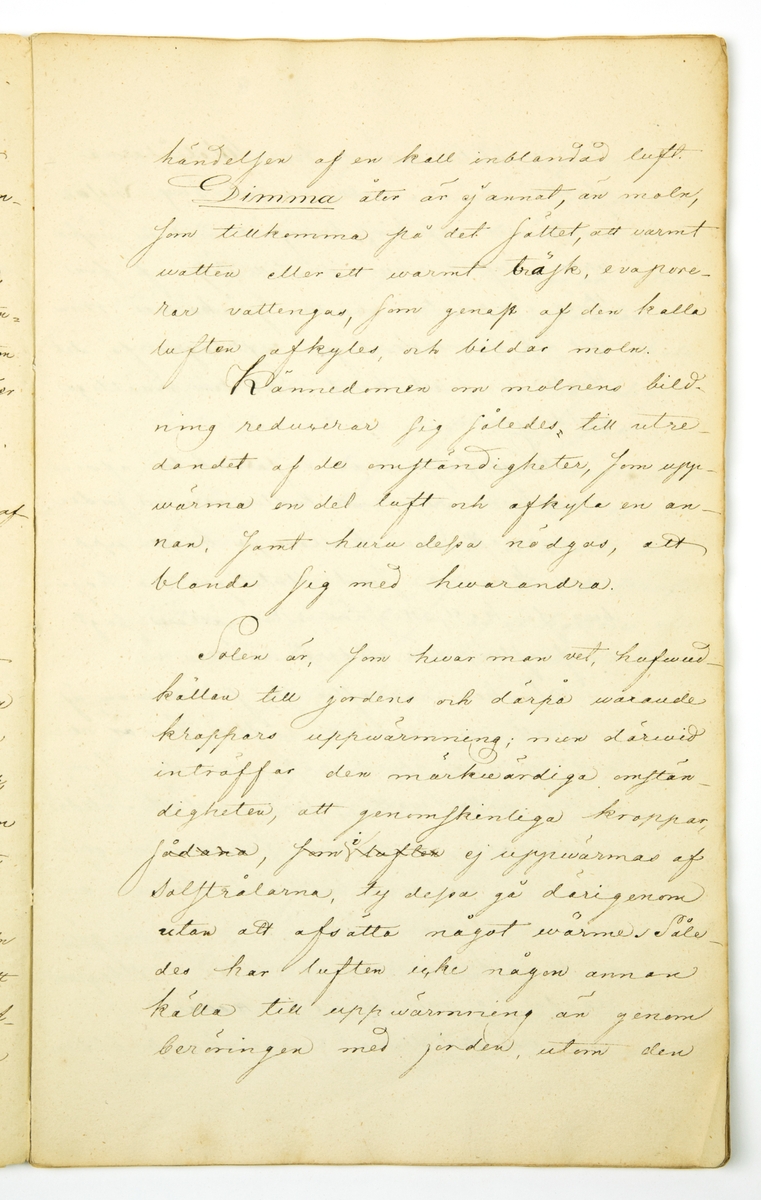 händelsen af en kall inblandad luft.
Dimma åter är ej annat, än moln,
som tillkomma på det sättet, att varmt
watten eller ett warmt träsk, evapore-
rar vattengas, som genast af den kalla
luften afkyles, och bildar moln.
Kännedomen om molnens bild-
ning reducerar sig således, till utre-
dandet af de omständigheter, som upp-
wärma en del luft och afkyla en an-
nan, samt huru dessa nödgas, att
blanda sig med hwarandra.
Solen är, som hwar man vet, hufwud-
källan till jordens och därpå warande
kroppars uppwärmning; men därwid
inträffar den märkwärdiga omstän-
digheten, att genomskinliga kroppar,
sådana, som i luften ej uppwärmas af
solstrålarna, ty dessa gå därigenom
utan att afsätta något wärme. Såle-
des har luften icke någon annan
källa till uppwärmning än genom
beröringen med jorden, utom den